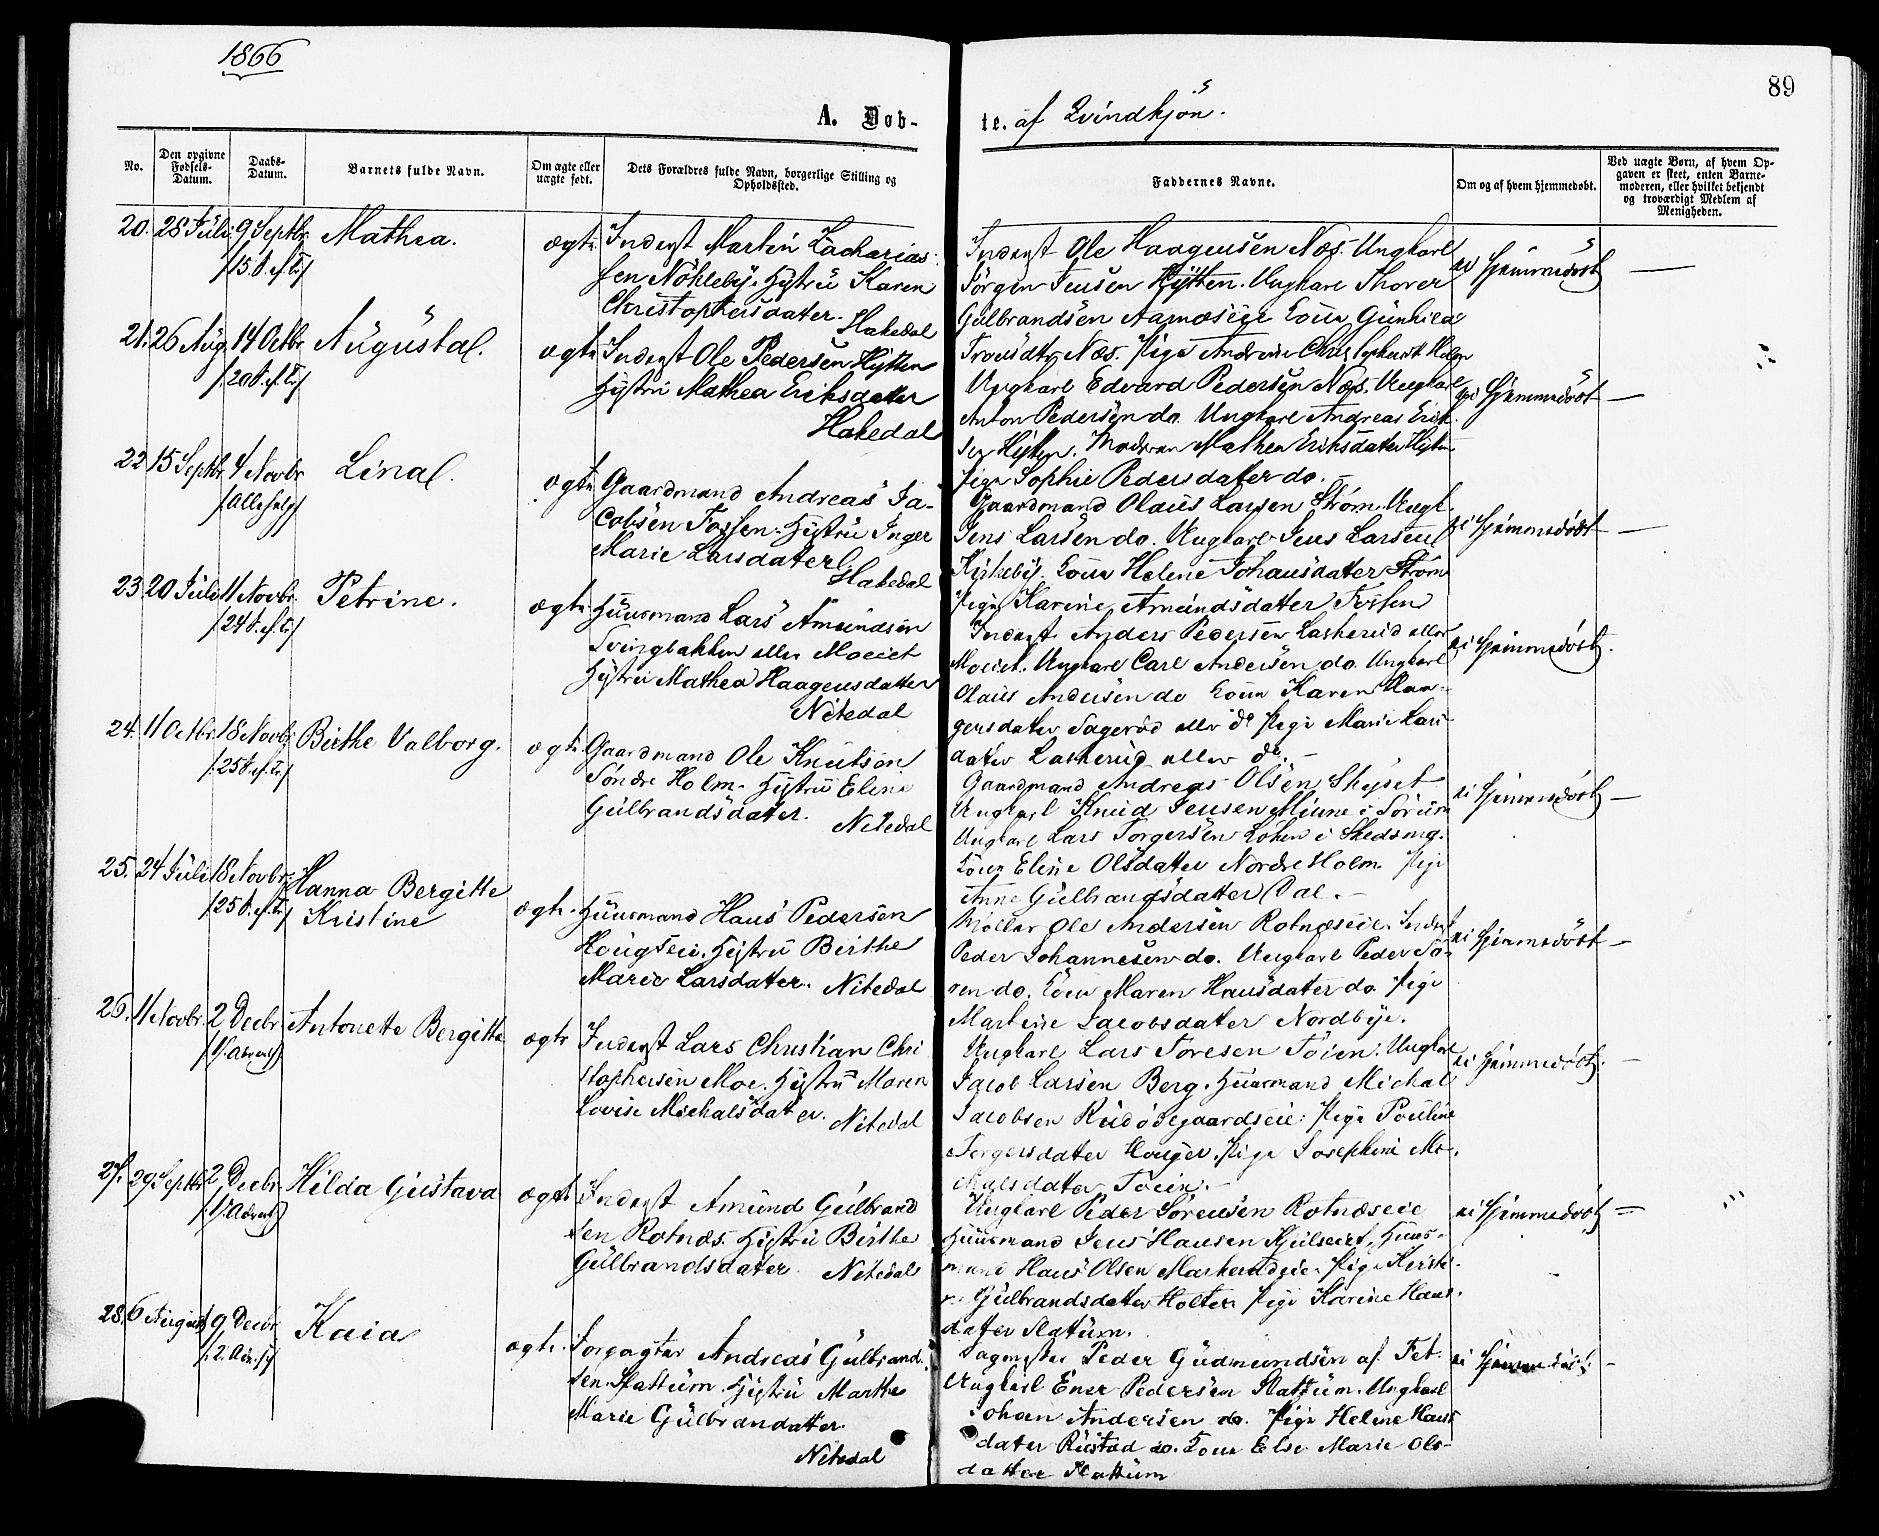 1866
89
A. Døb-
te. af Qvindkjön.
No.
Den opgivne Fødsels-Datum.
Daabs-Datum.
Barnets fulde Navn.
Om ægte eller uægte født.
Dets Forældres fulde Navn, borgerlige Stilling og Opholdssted.
Faddernes Navne.
Om og af hvem hjemmedøbt.
Ved uægte Børn, af hvem Op-
gaven er skeet, enten Barne-
moderen, eller hvilket bekjendt
og troværdigt Medlem af
Menigheden.
20. 28 Juli 9 Septbr. Mathea. ægte
/15 S. ef. Tr/
Inderst Martin Zacharias-
sen Nökleby. Hystru Karen
Christophersdater.
Hakedal
Inderst Ole Haagensen Næs. Ungkarl
Jörgen Jensen Hytten. Ungkarl Thorer
Gulbrandsen Aamoseie Kone Gunhild
Næs. Pige Andrine
ei Hjemmedöbt —
21. 26 Aug. 14 Octbr. Augusta. ægte
/20 S. ef. Tr/
Inderst Ole Pedersen Hytten
Hystru Mathea Eriksdatter
Hakedal
Ungkarl Edvard Pedersen Næs. Ungkarl
Anton Pedersen do. Ungkarl Andreas Erik-
sen Hytten. Moderen Mathea Eriksdater Hytten
Pige Sophie Pedersdater do.
ei Hjemmedöbt —
22 15 Septbr 4 Novbr Lina. ægte
/Allehelg/
Gaardmand Andreas Ja-
cobsen Fossen. Hystru Inger
Marie Larsdater.
Hakedal
Gaardmand Olaus Larsen Ström. Ungk.
Jens Larsen do. Ungkarl Jens Larsen
Kirkeby. Kone Helene Johansdater Ström
Pige Karine Amundsdatter Fossen
ei Hjemmedöbt —
23. 20 Juli 11 Novbr. Petrine. ægte
/24 S. ef. Tr/
Huusmand Lars Amundsen
Svingbakken eller Moeiet
Hystru Mathea Haagensdatter
Nitedal
Inderst Anders Pedersen Laskerud eller
Moeiet. Ungkarl Carl Andersen do. Ungkarl
Olaus Andersen do Kone Karen Haa-
gensdater Sagerud eller do Pige Marie Lars-
dater Laskerud eller do. —
ei Hjemmedöbt.
24. 11 Octbr. 18 Novbr. Birthe Valborg. ægte
/25 S. ef. Tr/
Gaardmand Ole Knutson
Söndre Holm. Hystru Eline
Gulbrandsdater.
Nitedal
Gaardmand Andreas Olsen Skyset
Ungkarl Knud Jensen Minne i Sörum
Ungkarl Lars Torgersen Löken i Skedsmo.
Kone Eline Olsdatter Nordre Holm. Pige
Anne Gulbrandsdatter Dal. —
ei Hjemmedöbt —
25. 24 Juli 18 Novbr. Hanna Bergitte
Kristine ægte.
/25 S. ef. Tr/
Huusmand Hans Pedersen
Haugseie. Hystru Birthe
Marie Larsdatter. Nitedal
Möller Ole Andersen Rotnæseie. Inderst
Peder Johannesen do. Ungkarl Peder Sö-
ren do. Kone Maren Hansdater do. Pige
Martine Jacobsdater Nordbye.
ei Hjemmedöbt —
26. 11 Novbr. 2 Decbr. Antonette Bergitte ægte
/1. Advent/
Inderst Lars Christian Chri
stophersen Moe. Hystru Maren
Lovise Michalsdater. Nitedal
Ungkarl Lars Toresen Töien. Ungkarl
Jacob Larsen Berg. Huusmand Michal
Jacobsen Rudödegaardseie: Pige Pouline
Torgersdater Hauger. Pige Josephine Mi-
kalsdater Töien. —
ei Hjemmedöbt. —
27. 29 Septbr. 2 Decbr. Hilda Gustava ægte
/1. Advent/
Inderst Amund Gulbrand
sen Rotnæs. Hystru Birthe
Gulbrandsdater. Nitedal
Ungkarl Peder Sörensen Rotnæseie
Huusmand Jens Hansen Kjulseiet, Huus-
mand Hans Olsen Markerudeie. Pige Kirsti-
ne Gulbrandsdater Holter. Pige Karine Hans-
dater Slattum.
ei Hjemmedöbt —
28. 6 August 9 Decbr Kaia ægte.
/2. Adv. S/
Forpagter Andreas Gulbrand-
sen Slattum. Hystru Marthe
Marie Gulbrandatter.
Nitedal
Sagmester Peder Gudmundsen af Fet.
Ungkarl Ener Pedersen Slattum. Ungkarl
Johan Andersen do. Pige Helene Hans
dater Rustad do. Kone Else Marie Ols-
datter Slattum
ei Hjemmedöbt. —